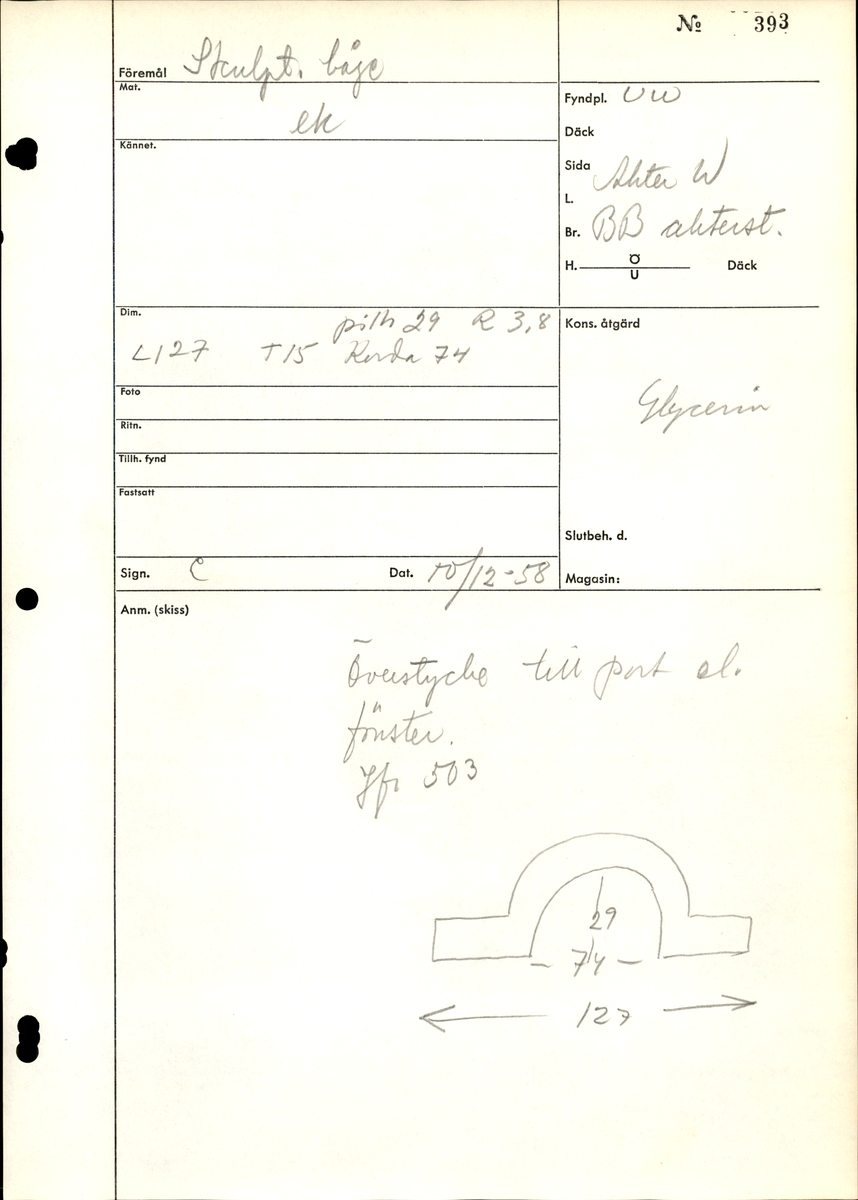 No 393
Föremål Skulpt. båge
Mat.
ek
Kännet.
Fyndpl. UW
Däck
Sida
Akter W
L.
Br. BB akterst.
H. Ö
U
Däck
Dim.
pilh 29 R 3,8
L 127 T 15 Korda 74
Foto
Ritn.
Tillh. fynd
Fastsatt
Kons. åtgärd
Glycerin
Slutbeh. d.
Sign. C Dat. 10/12-58
Magasin:
Anm. (skiss)
Överstycke till port el.
fönster.
Jfr 503
29
74
127